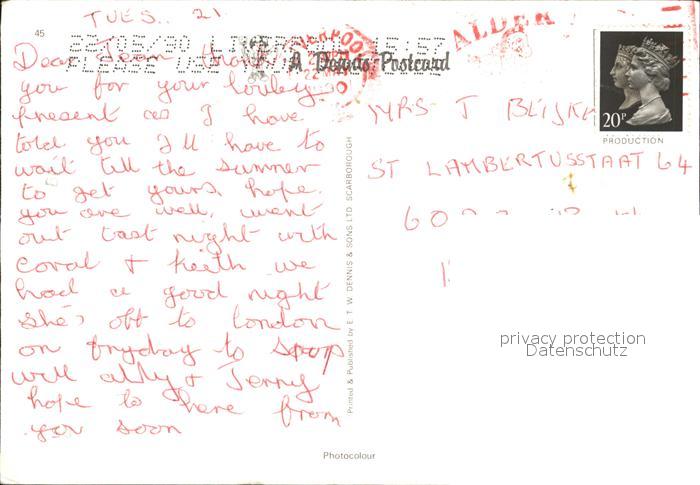 TUES.. 21
45
22/05/90 LIVERPOOL
PLEASE USE
A Dennis Postcard
Dear Jean thank
you for your louley
present as I have
told you I'll have to
wait till the summer
to get yours, hope.
you are well, went
out last night with
Coral + Keith we
had a good night
she's off to london
on fryday to stop
will ally + Jenny
hope to here from
you soon
Printed & Published by E. T. W. DENNIS & SONS LTD SCARBOROUGH
20P
PRODUCTION
MRS J
ST LAMBERTUSSTAAT 64
60
privacy protection
Datenschutz
Photocolour